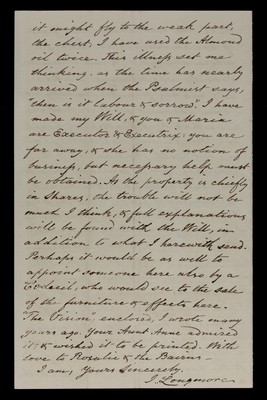 it might fly to the weak part,
the chest, I have used the Almond
oil twice. This illness set me
thinking. as the time has nearly
arrived when the Psalmist says,
"then is it labour & sorrow." I have
made my Will, & you & Maria
are Executor & Executrix; you are
far away, & she has no notion of
business, but necessary help must
be obtained. As the property is chiefly
in Shares, the trouble will not be
much I think, & full explanations
will be found with the Will, in
addition to what I herewith send.
Perhaps it would be as well to
appoint someone here also by a
Codicil, who would see to the sale
of the furniture & effects here.
"The Vision" enclosed, I wrote many
years ago. Your Aunt Anne admired
it & wished it to be printed. With
love to Rosalie & the Bairns—
I am, Yours Sincerely,
J. Longmore